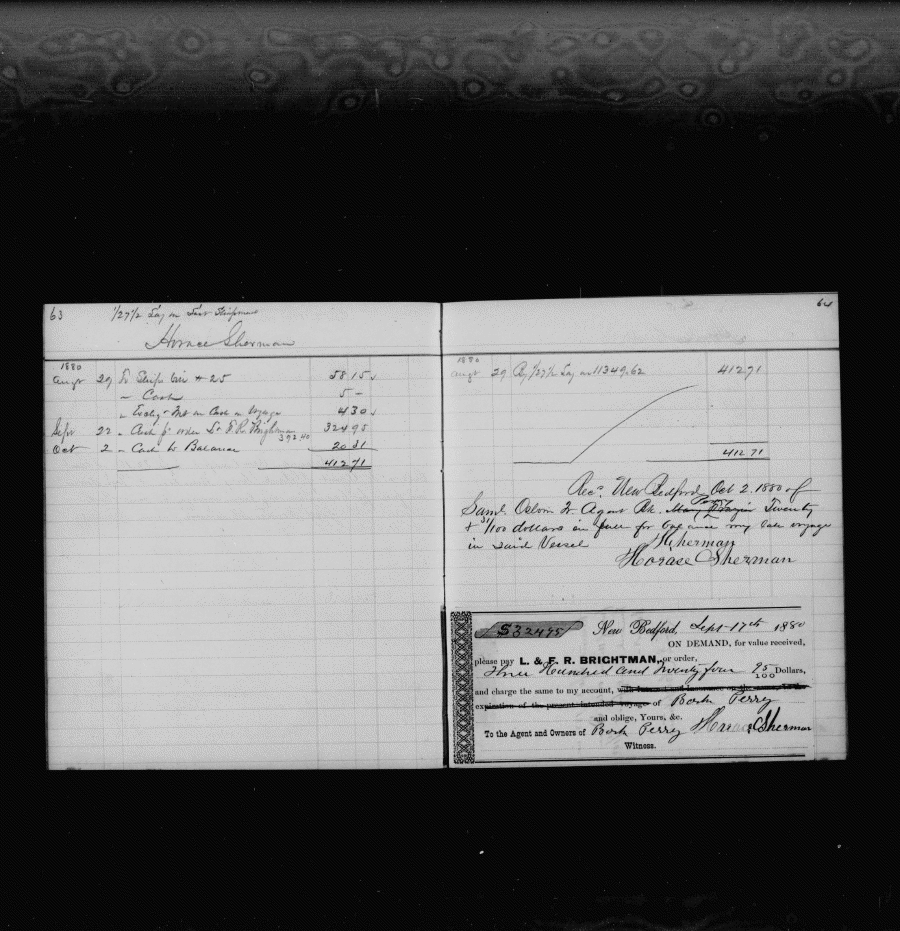 63 1/27½ Lay on Last Shipment
Horace Sherman
1880
Augt 29 To Ships bill + 25 58 15
" Cash 5 -
" Exchg & Int on Cash on Voyage 4 30
Sept 22 " Cash pr order L & F R Brightman 324 95
392 40
Oct 2 " Cash to Balance 20 31
412 71
64
1880
Augt 29 By 1/27½ Lay on 11349.62 412 71
412 71
Recd. New Bedford Oct 2. 1880 of
Perry
Saml Osborn Jr Agent Bk. Mary Frazier Twenty
& 31/100 dollars in full for balance my late voyage
in said Vessel HSherman
Horace Sherman
$324 95 New Bedford, Sept 17th 1880
ON DEMAND, for value received,
please pay L. & F. R. BRIGHTMAN, or order,
Three Hundred and Twenty four 95/100 Dollars,
and charge the same to my account, with interest and insurance on the same to the
expiration of the present intended voyage of Bark Perry
and oblige, Yours, &c.
To the Agent and Owners of Bark Perry Horace Sherman
Witness.